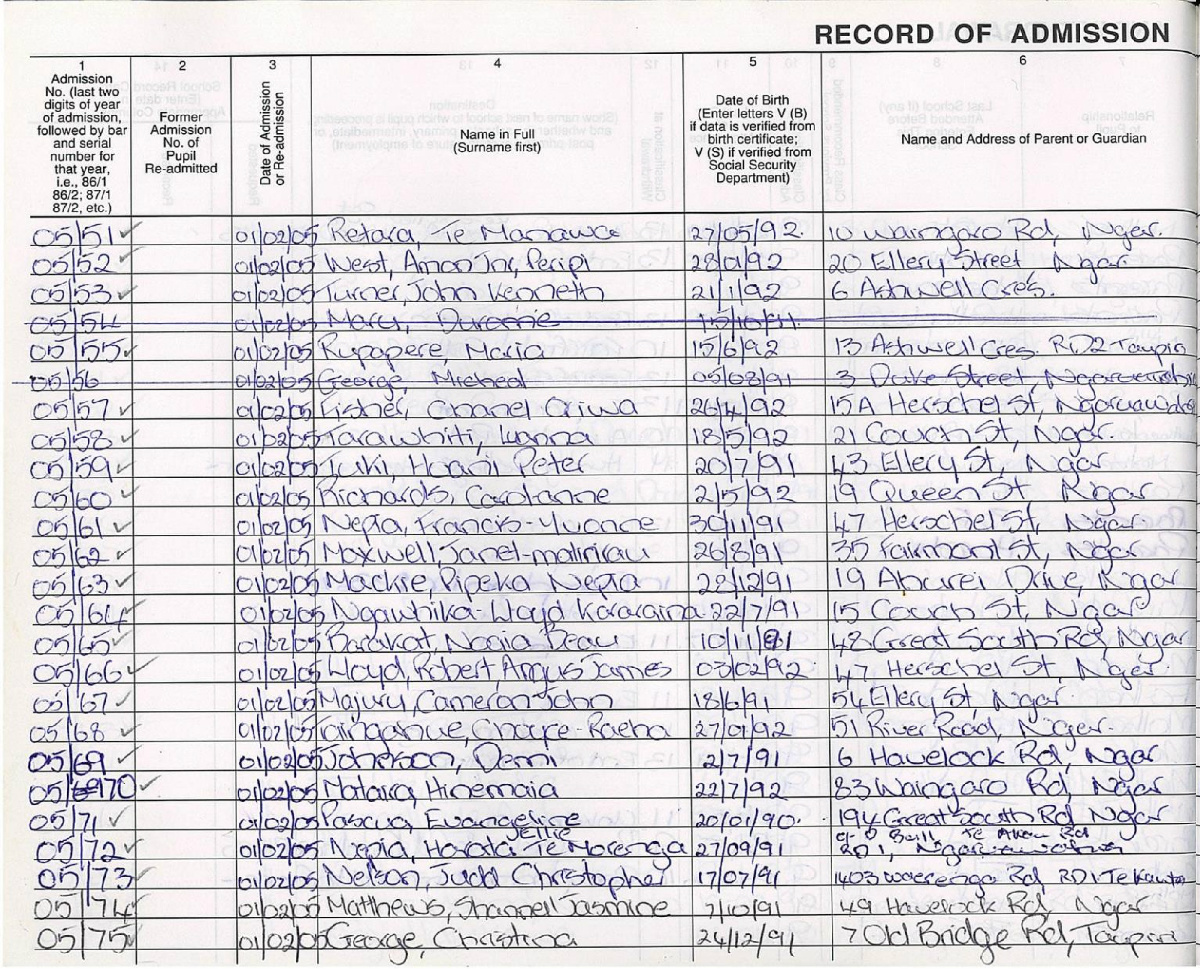 RECORD OF ADMISSION
1 2 3 4 5 6
Admission No. (last two digits of year of admission, followed by bar and serial number for that year, i.e., 86/1 86/2; 87/1 87/2, etc.)
Former Admission No. of Pupil Re-admitted
Date of Admission or Re-admission
Name in Full (Surname first)
Date of Birth (Enter letters V (B) if data is verified from birth certificate; V (S) if verified from Social Security Department)
Name and Address of Parent or Guardian
05/51 ✓ 01/02/05 Retara, Te Manawa 27/05/92 10 Waingaro Rd, Ngar.
05/52 ✓ 01/02/05 West, Amon Jnr, Peripi 28/01/92 20 Ellery Street, Ngar
05/53 ✓ 01/02/05 Turner, John Kenneth 21/1/92 6 Ashwell Cres.
05/54 01/02/05
05/55 ✓ 01/02/05 Rupapere, Maria 15/6/92 13 Ashwell Cres. RD2 Taupiri
05/56 01/02/05 George, Micheal 05/08/91 3 Duke Street,
05/57 ✓ 01/02/05 Fisher, Chanel 26/4/92 15A Herschel St,
05/58 ✓ 01/02/05 Tarawhiti, 18/5/92 21 Couch St, Ngar.
05/59 ✓ 01/02/05 Tuki, Hoani Peter 20/7/91 43 Ellery St, Ngar
05/60 ✓ 01/02/05 Richards, Carolanne 2/5/92 19 Queen St Ngar
05/61 ✓ 01/02/05 Nepia, Francis-Yvonne 30/11/91 47 Herschel St, Ngar
05/62 ✓ 01/02/05 Maxwell, 26/8/91 35 Fairmont St, Ngar
05/63 ✓ 01/02/05 Mackie, Ripeka Nepia 28/12/91 19 Drive, Ngar
05/64 01/02/05 Ngawhika-Lloyd 22/7/91 15 Couch St, Ngar
05/65 ✓ 01/02/05 Barakat, Nadia Deau 10/11/91 48 Great South Rd, Ngar
05/66 ✓ 01/02/05 Lloyd, Robert Angus James 03/02/92 47 Herschel St, Ngar.
05/67 ✓ 01/02/05 Majury, Cameron John 18/6/91 54 Ellery St, Ngar.
05/68 ✓ 01/02/05 27/01/92 51 River Road, Ngar.
05/69 ✓ 01/02/05 Johnson, Demi 2/7/91 6 Havelock Rd, Ngar
05/70 ✓ 01/02/05 Mataira, Hinemaia 22/7/92 83 Waingaro Rd, Ngar
05/71 ✓ 01/02/05 Pascua, Evangeline 20/01/90. 194 Great South Rd Ngar
05/72 ✓ 01/02/05 Nepia, Te Morenga 27/09/91
05/73 ✓ 01/02/05 Nelson, Judd Christopher 17/07/91 1403 Waerenga Rd RD1 Te Kauwhata
05/74 01/02/05 Matthews, Shannell Jasmine 7/10/91 49 Havelock Rd, Ngar
05/75 01/02/05 George, Christina 24/12/91 7 Old Bridge Rd, Taupiri